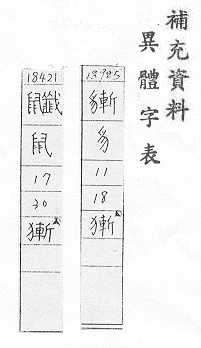 補充資料
異體字表
豸
11
18
獑
18421
鼠
17
30
獑